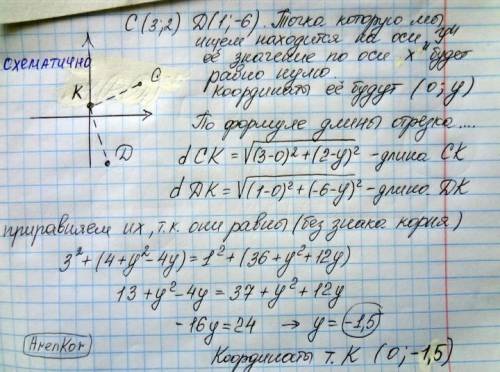 C (3; 2) D (1; -6). Точка которую мы
ищем находится на оси „y"
СХЕМАТИЧНО
её значение по оси „x" будет
равно нулю.
Координаты её будут (0; y)
K
C
D
По формуле длины отрезка ....
d CK = √(3-0)² + (2-y)² - длина CK
d DK = √(1-0)² + (-6-y)² - длина DK
приравняем их, т.к. они равны (без знака корня)
3² + (4 + y² - 4y) = 1² + (36 + y² + 12y)
13 + y² - 4y = 37 + y² + 12y
-16y = 24 → y = -1,5
ArenKor
Координаты т. K (0; -1,5)